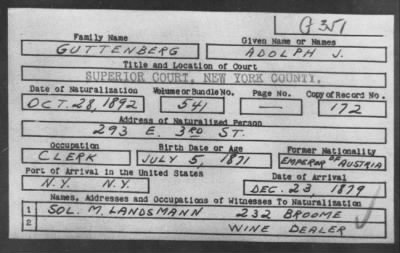 G 351
Family Name Given Name or Names
GUTTENBERG ADOLPH J.
Title and Location of Court
SUPERIOR COURT, NEW YORK COUNTY.
Date of Naturalization Volume or Bundle No. Page No. Copy of Record No.
OCT. 28, 1892 541 — 172
Address of Naturalized Person
293 E. 3RD ST.
Occupation Birth Date or Age Former Nationality
CLERK JULY 5, 1871 EMPEROR OF AUSTRIA
Port of Arrival in the United States Date of Arrival
N.Y. N.Y. DEC. 23, 1879
Names, Addresses and Occupations of Witnesses To Naturalization
1 SOL. M. LANDSMANN 232 BROOME
2 WINE DEALER